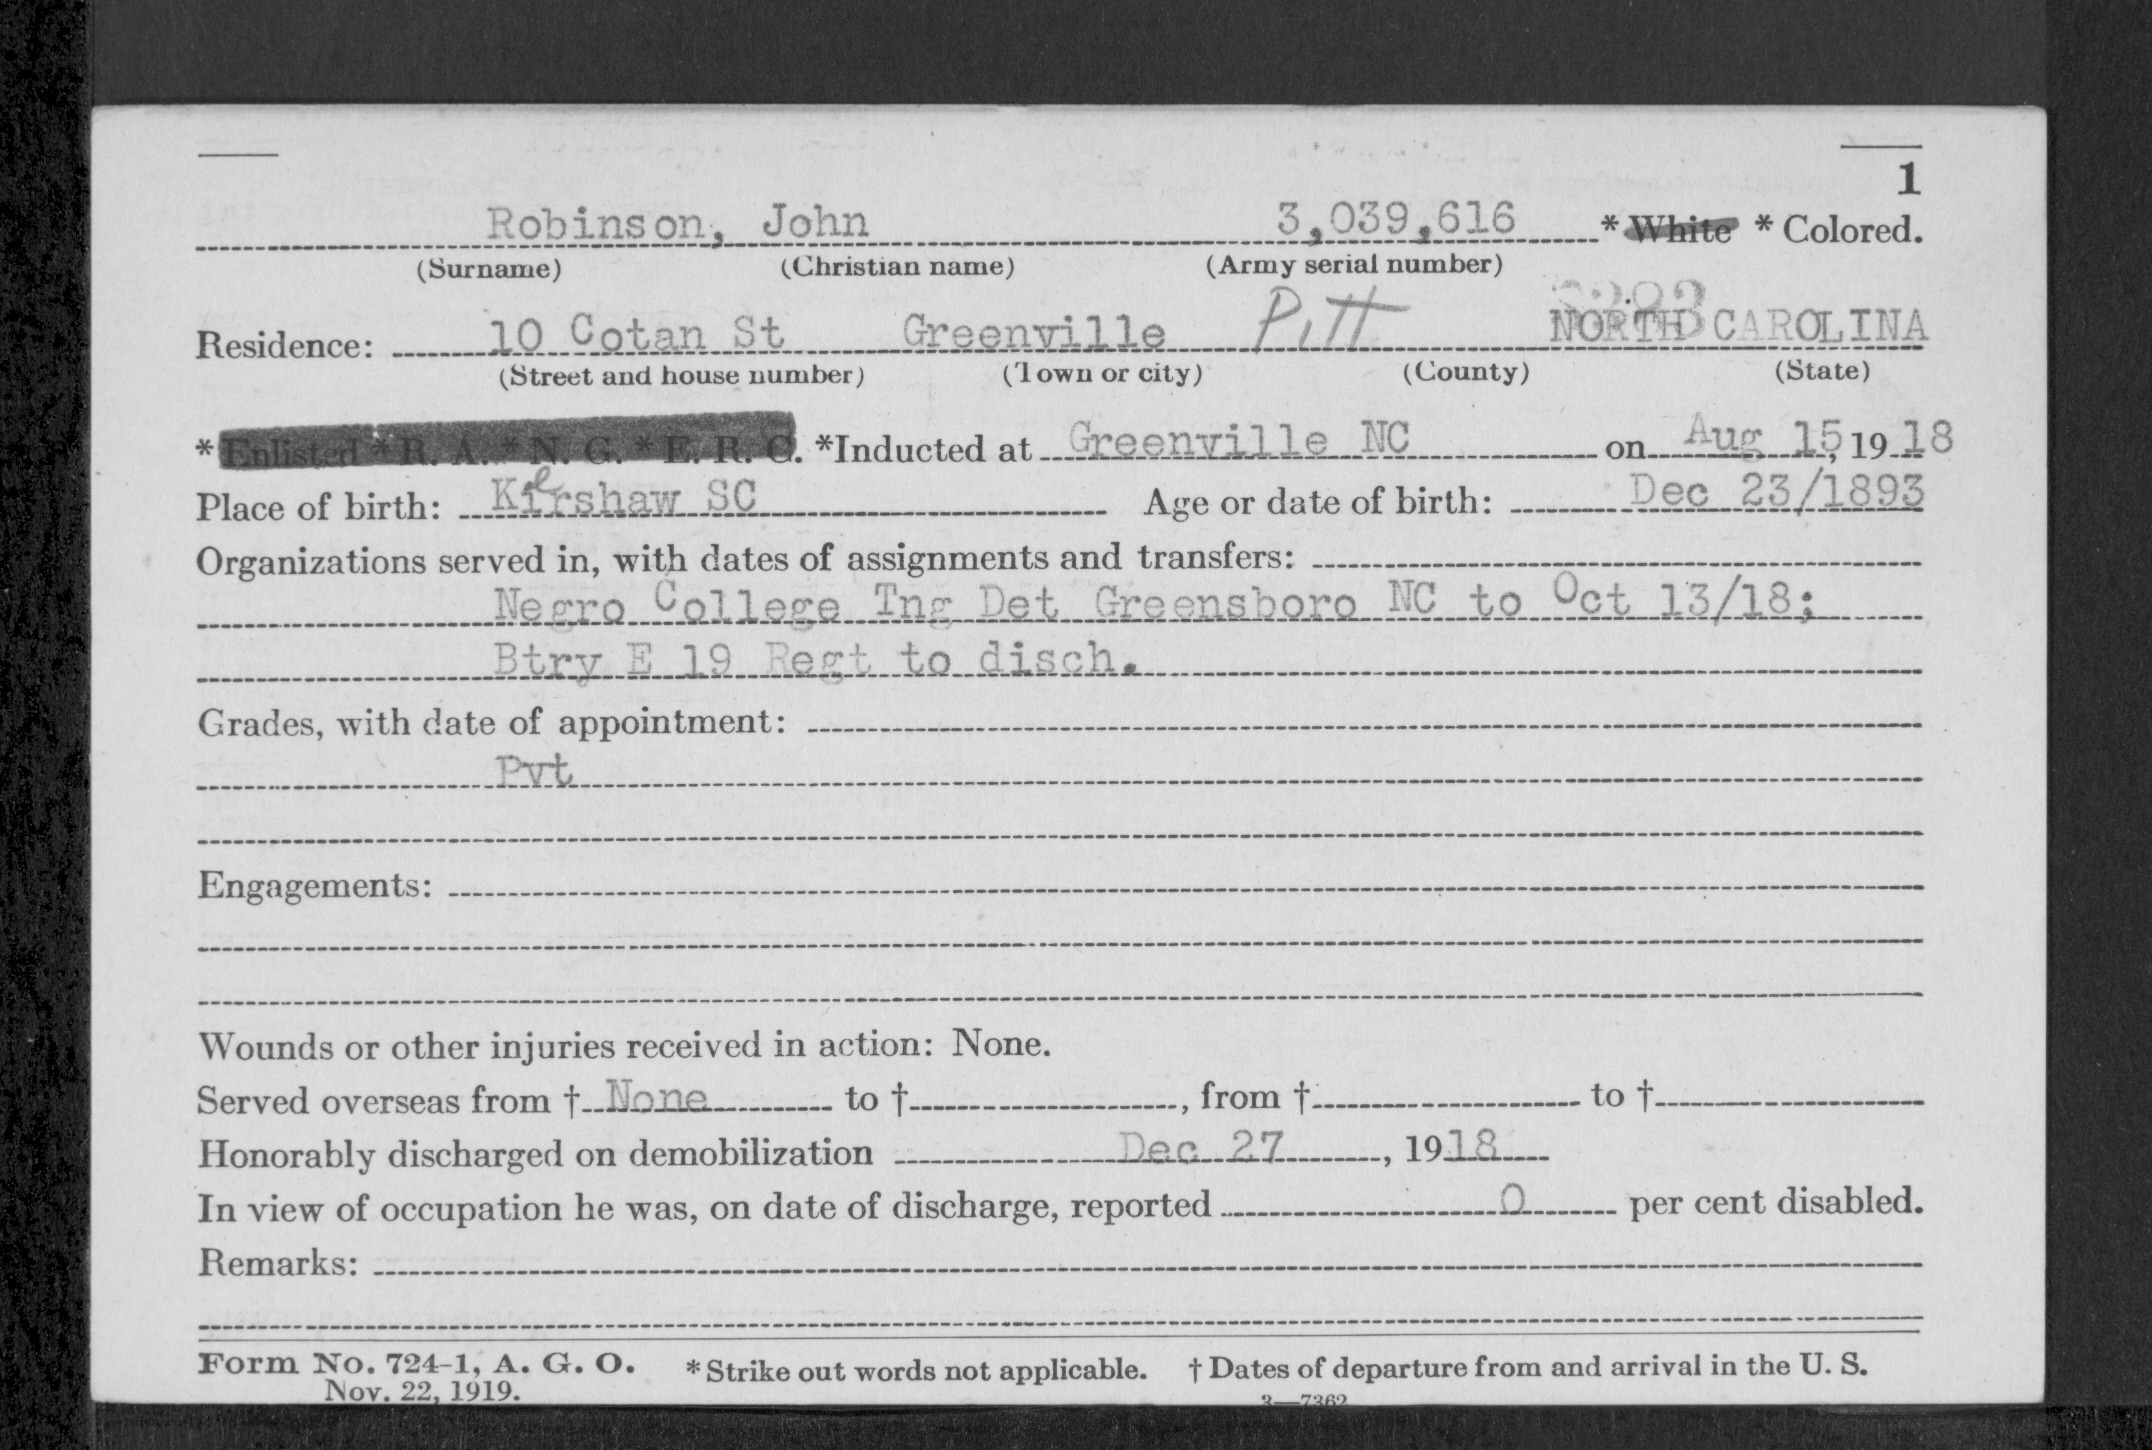 1
Robinson, John 3,039,616 * White * Colored.
(Surname) (Christian name) (Army serial number)
Residence: 10 Cotan St Greenville Pitt NORTH CAROLINA
(Street and house number) (Town or city) (County) (State)
* Enlisted * R. A. * N. G. * E. R. C. *Inducted at Greenville NC on Aug 15, 1918
Place of birth: Kershaw SC Age or date of birth: Dec 23/1893
Organizations served in, with dates of assignments and transfers:
Negro College Tng Det Greensboro NC to Oct 13/18;
Btry E 19 Regt to disch.
Grades, with date of appointment:
Pvt
Engagements:
Wounds or other injuries received in action: None.
Served overseas from † None to †, from † to †
Honorably discharged on demobilization Dec 27, 1918
In view of occupation he was, on date of discharge, reported 0 per cent disabled.
Remarks:
Form No. 724-1, A. G. O. *Strike out words not applicable. † Dates of departure from and arrival in the U. S.
Nov. 22, 1919. 3—7362